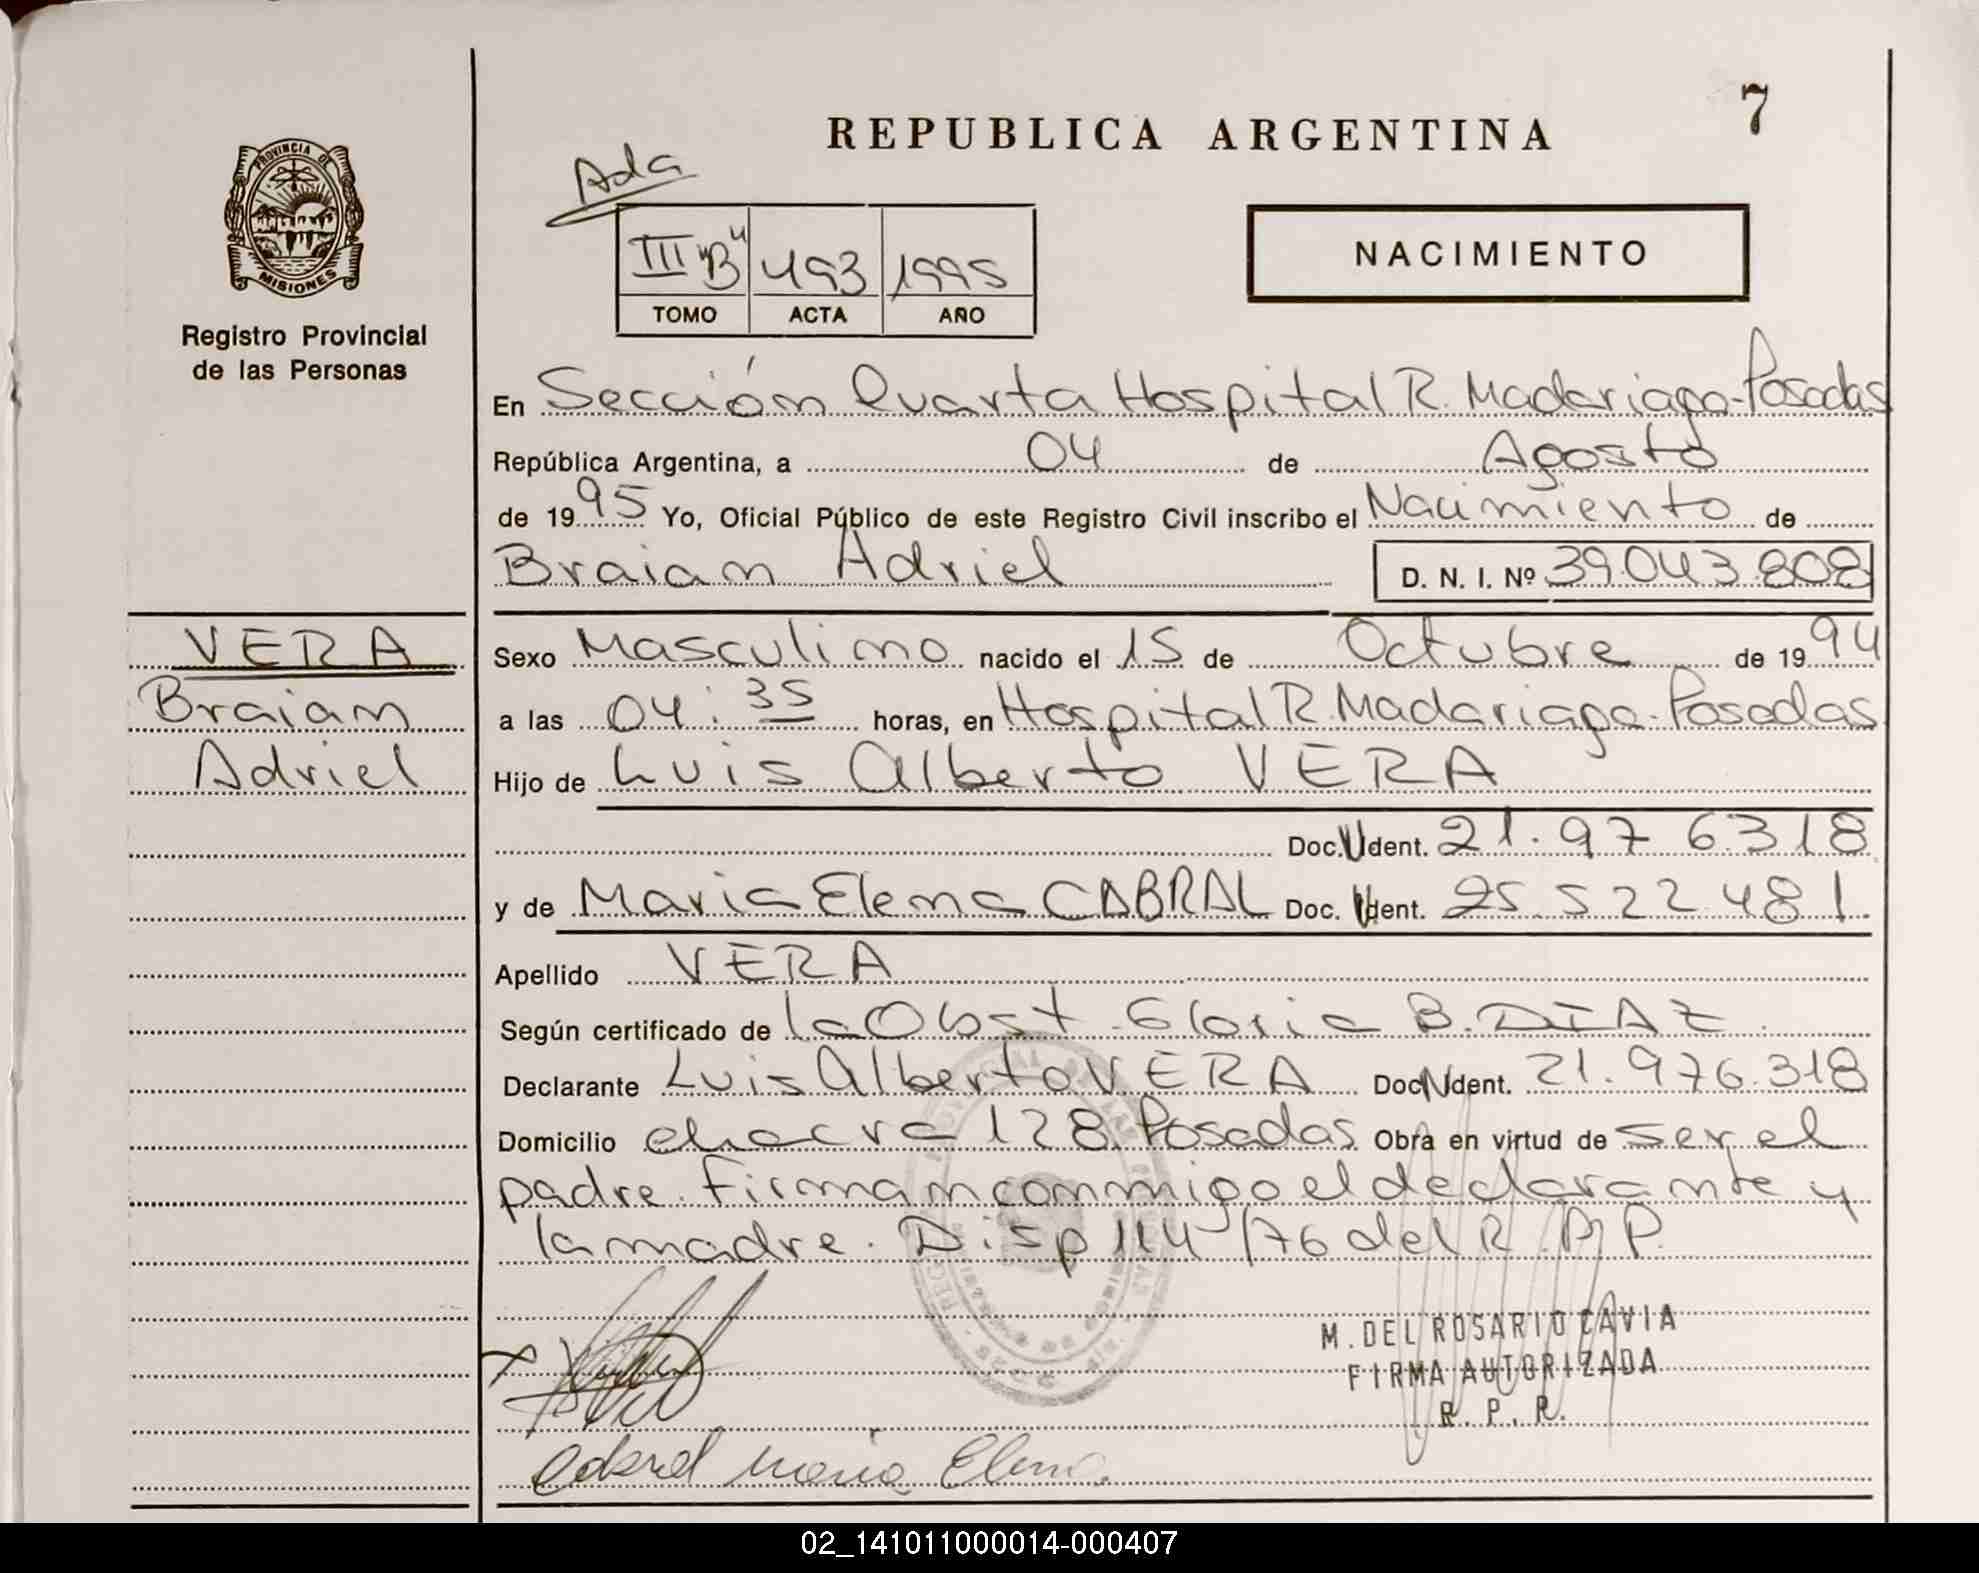 7
REPUBLICA ARGENTINA
Ada
PROVINCIA DE
MISIONES
III "B" 493 1995
TOMO ACTA AÑO
NACIMIENTO
Registro Provincial
de las Personas
En Sección Cuarta Hospital R. Madariaga-Posadas
República Argentina, a 04 de Agosto
de 1995 Yo, Oficial Público de este Registro Civil inscribo el Nacimiento de
Braian Adriel D. N. I. Nº 39.043.808
VERA
Braian
Adriel
Sexo Masculino nacido el 15 de Octubre de 1994
a las 04:35 horas, en Hospital R. Madariaga-Posadas
Hijo de Luis Alberto VERA
Doc. Ident. 21.976318
y de Maria Elena CABRAL Doc. Ident. 25.522481
Apellido VERA
Según certificado de la Obst. Gloria B. DIAZ
Declarante Luis Alberto VERA Doc. Ident. 21.976.318
Domicilio chacra 128 Posadas Obra en virtud de ser el
padre. Firman conmigo el declarante y
la madre. Disp 114/76 del R.P.P.
M. DEL ROSARIO CAVIA
FIRMA AUTORIZADA
R. P. P.
Cabral Maria Elena
02_141011000014-000407